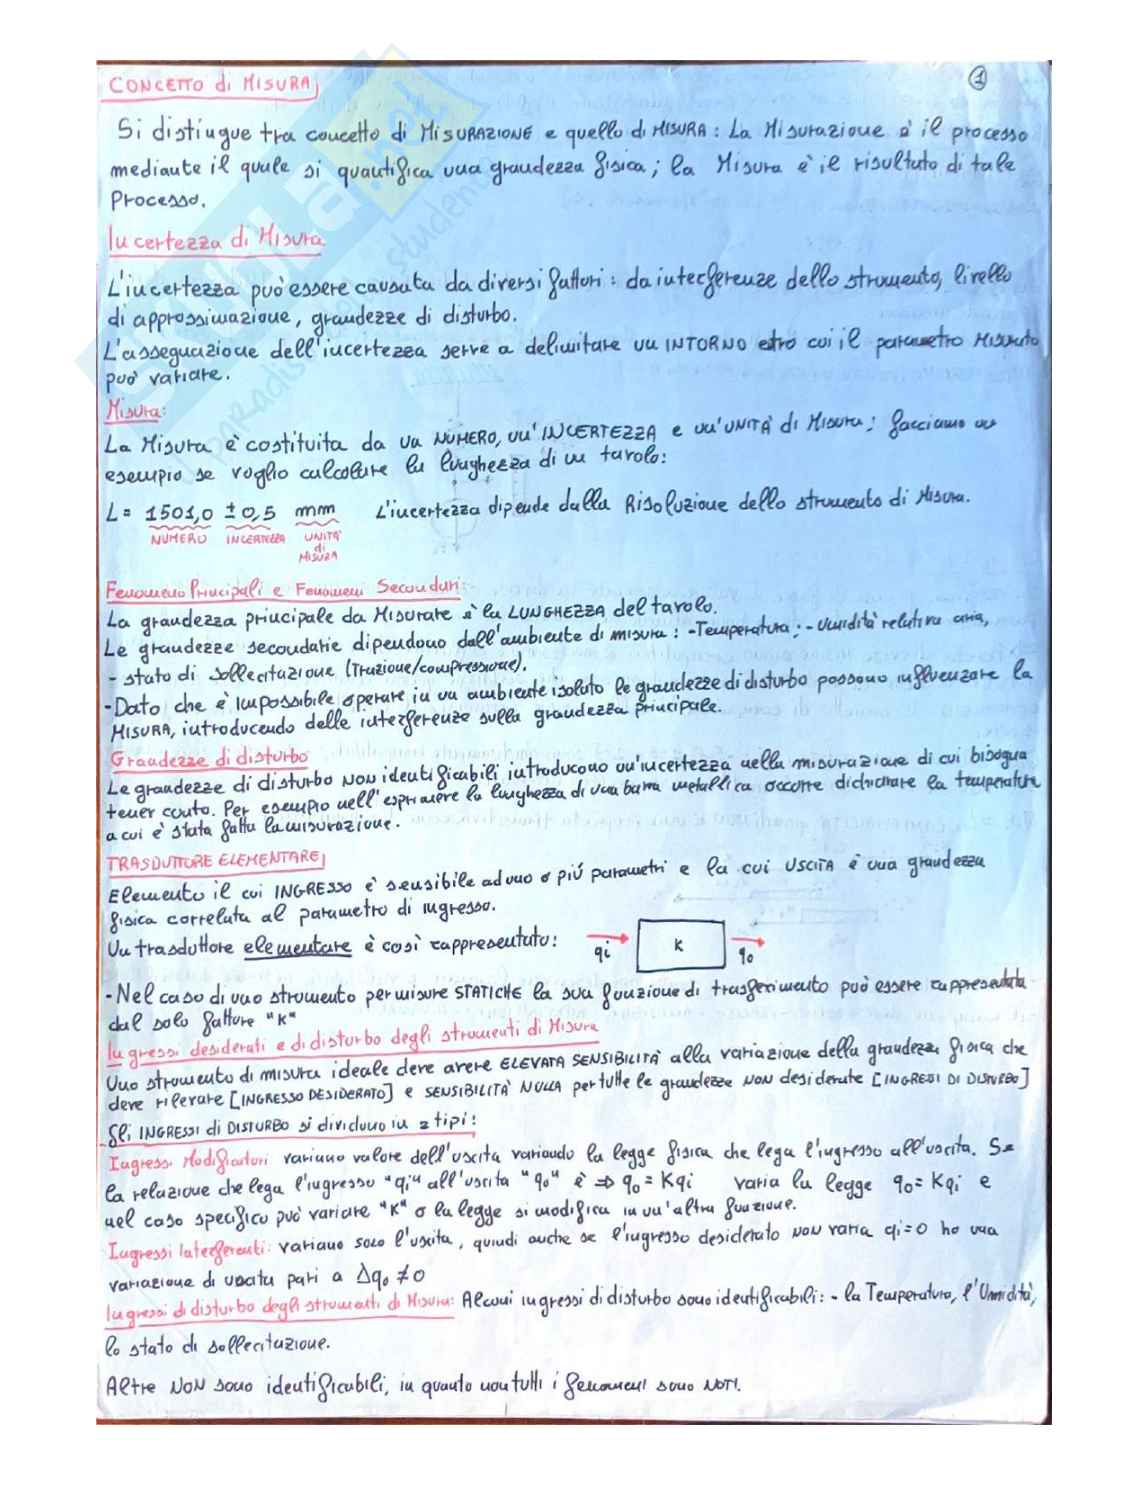 1
CONCETTO di MISURA
Si distingue tra concetto di MISURAZIONE e quello di MISURA: La Misurazione è il processo
mediante il quale si quantifica una grandezza fisica; la Misura è il risultato di tale
Processo.
Incertezza di Misura
L'incertezza può essere causata da diversi fattori: da interferenze dello strumento, livello
di approssimazione, grandezze di disturbo.
L'assegnazione dell'incertezza serve a delimitare un INTORNO etro cui il parametro MISURATO
può variare.
Misura:
La Misura è costituita da un NUMERO, un'INCERTEZZA e un'UNITÀ di Misura; facciamo un
esempio se voglio calcolare la lunghezza di un tavolo:
L= 1501,0 ±0,5 mm L'incertezza dipende dalla Risoluzione dello strumento di Misura.
NUMERO INCERTEZZA UNITÀ
di
MISURA
Fenomeno Principali e Fenomeni Secondari:
La grandezza principale da Misurare è la LUNGHEZZA del tavolo.
Le grandezze secondarie dipendono dall'ambiente di misura: -Temperatura; -umidità relativa aria,
- stato di sollecitazione (Trazione/compressione).
-Dato che è impossibile operare in un ambiente isolato le grandezze di disturbo possono influenzare la
MISURA, introducendo delle interferenze sulla grandezza principale.
Grandezze di disturbo
Le grandezze di disturbo NON identificabili introducono un'incertezza nella misurazione di cui bisogna
tener conto. Per esempio nell'esprimere la lunghezza di una barra metallica occorre dichiarare la temperatura
a cui è stata fatta la misurazione.
TRASDUTTORE ELEMENTARE
Elemento il cui INGRESSO è sensibile ad uno o più parametri e la cui USCITA è una grandezza
fisica correlata al parametro di ingresso.
Un trasduttore elementare è così rappresentato: qi K qo
-Nel caso di uno strumento per misure STATICHE la sua funzione di trasferimento può essere rappresentata
dal solo fattore "K"
Ingressi desiderati e di disturbo degli strumenti di Misura
Uno strumento di misura ideale deve avere ELEVATA SENSIBILITÀ alla variazione della grandezza fisica che
deve rilevare [INGRESSO DESIDERATO] e SENSIBILITÀ NULLA per tutte le grandezze NON desiderate [INGRESSI DI DISTURBO]
Gli INGRESSI di DISTURBO si dividono in 2 tipi:
Ingressi Modificatori variano valore dell'uscita variando la legge fisica che lega l'ingresso all'uscita. Se
la relazione che lega l'ingresso "qi" all'uscita "qo" è ⇒ qo = Kqi varia la legge qo = Kqi e
nel caso specifico può variare "K" o la legge si modifica in un'altra funzione.
Ingressi Interferenti: variano solo l'uscita, quindi anche se l'ingresso desiderato NON varia qi=0 ho una
variazione di uscita pari a Δqo ≠0
Ingressi di disturbo degli strumenti di Misura: Alcuni ingressi di disturbo sono identificabili: - la Temperatura, l'Umidità,
lo stato di sollecitazione.
Altre NON sono identificabili, in quanto non tutti i fenomeni sono NOTI.